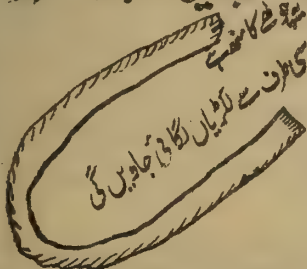 چولھے کا منھ ہے
اسی طرف سے لکڑیاں لگائی جاویں گی